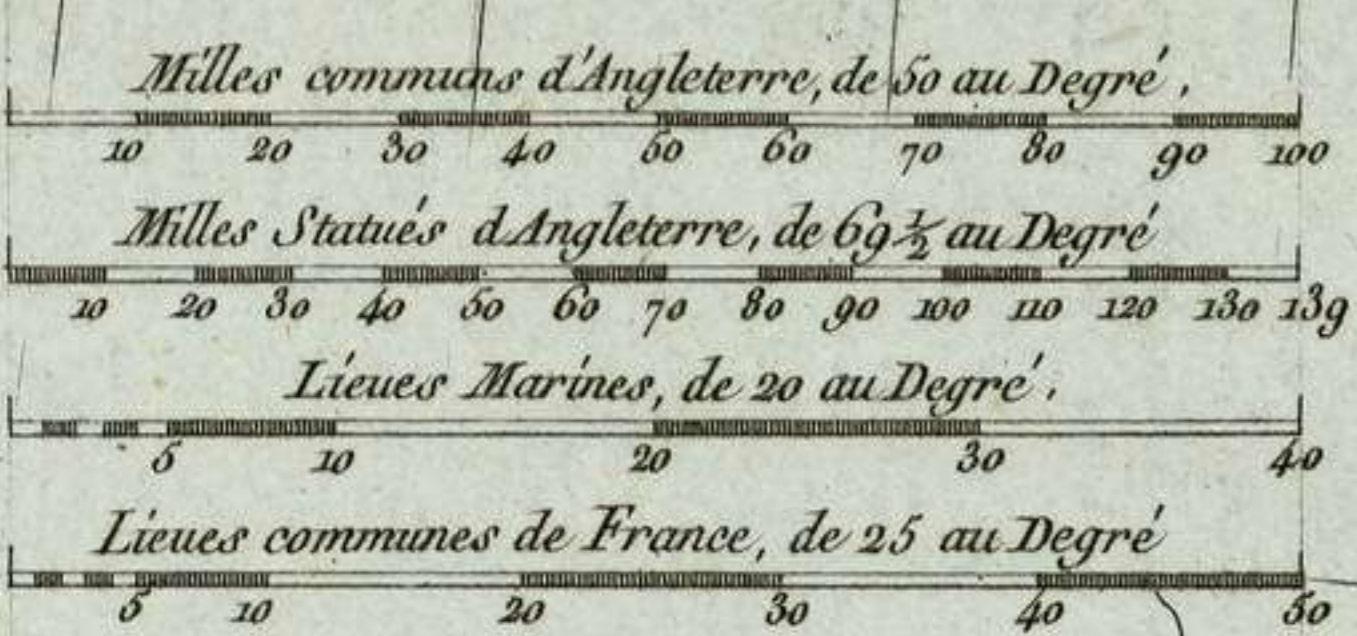 Milles communs d'Angleterre, de 50 au Degré.
10 20 30 40 50 60 70 80 90 100
Milles Statués d'Angleterre, de 69 ½ au Degré
10 20 30 40 50 60 70 80 90 100 110 120 130 139
Lieues Marines, de 20 au Degré.
5 10 20 30 40
Lieues communes de France, de 25 au Degré
5 10 20 30 40 50